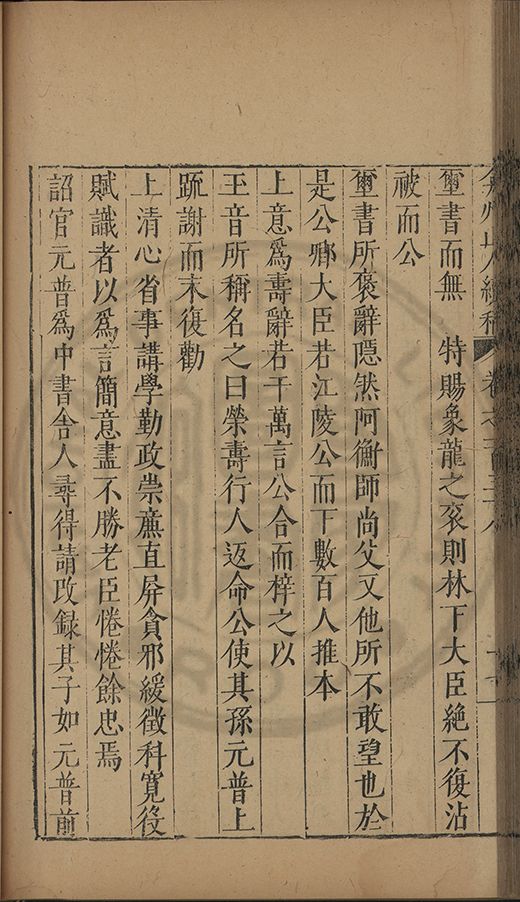 弇州山人續稿 卷之一百三十八
璽書而無 特賜象龍之衮則林下大臣絶不復沾
被而公
璽書所褒辭隱然阿衡師尚父又他所不敢望也於
是公卿大臣若江陵公而下數百人推本
上意爲壽辭若干萬言公合而梓之以
王音所稱名之曰榮壽行人返命公使其孫元普上
䟽謝而末復勸
上清心省事講學勤政崇亷直屏貪邪緩徵科寛役
賦識者以爲言簡意盡不勝老臣惓惓餘忠焉
詔官元普爲中書舍人尋得請改録其子如元普前